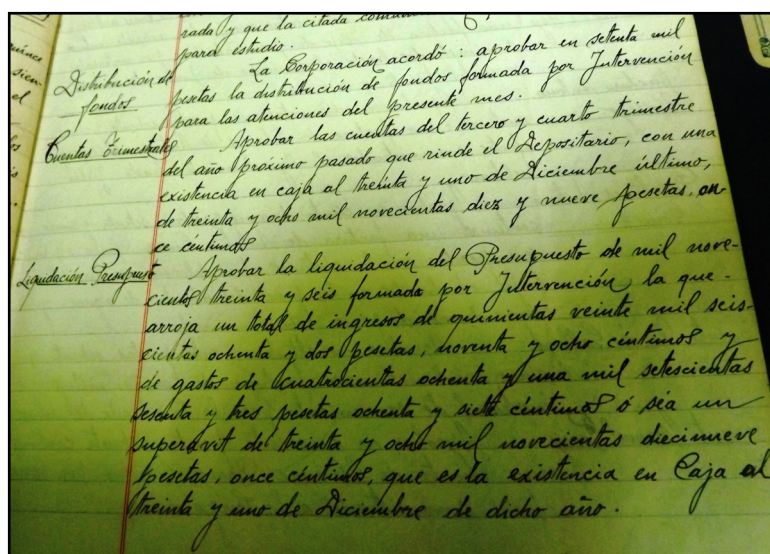 rada y que la citada
para estudio.
Distribución de fondos
La Corporación acordó: aprobar en setenta mil
pesetas la distribución de fondos formada por Intervención
para las atenciones del presente mes.
Cuentas Trimestrales
Aprobar las cuentas del tercero y cuarto trimestre
del año próximo pasado que rinde el Depositario, con una
existencia en caja al treinta y uno de Diciembre último,
de treinta y ocho mil novecientas diez y nueve pesetas, on-
ce céntimos
Liquidación Presupuesto
Aprobar la liquidación del Presupuesto de mil nove-
cientos treinta y seis formada por Intervención la que-
arroja un total de ingresos de quinientas veinte mil seis-
cientas ochenta y dos pesetas, noventa y ocho céntimos y
de gastos de cuatrocientas ochenta y una mil setescientas
sesenta y tres pesetas ochenta y siete céntimos ó séa un
superavit de treinta y ocho mil novecientas diecinueve
pesetas, once céntimos, que es la existencia en Caja al
treinta y uno de Diciembre de dicho año.